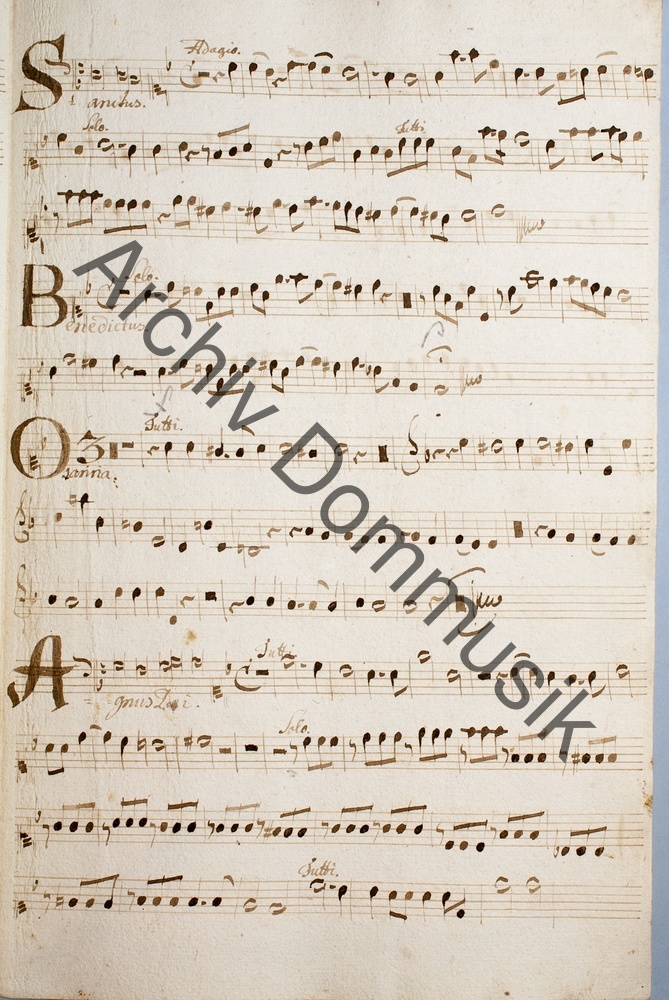 Adagio.
Sanctus.
Solo. Tutti
Solo.
Benedictus.
Tutti.
Osanna.
Tutti.
Agnus Dei.
Solo.
Tutti.
Archiv Dommusik